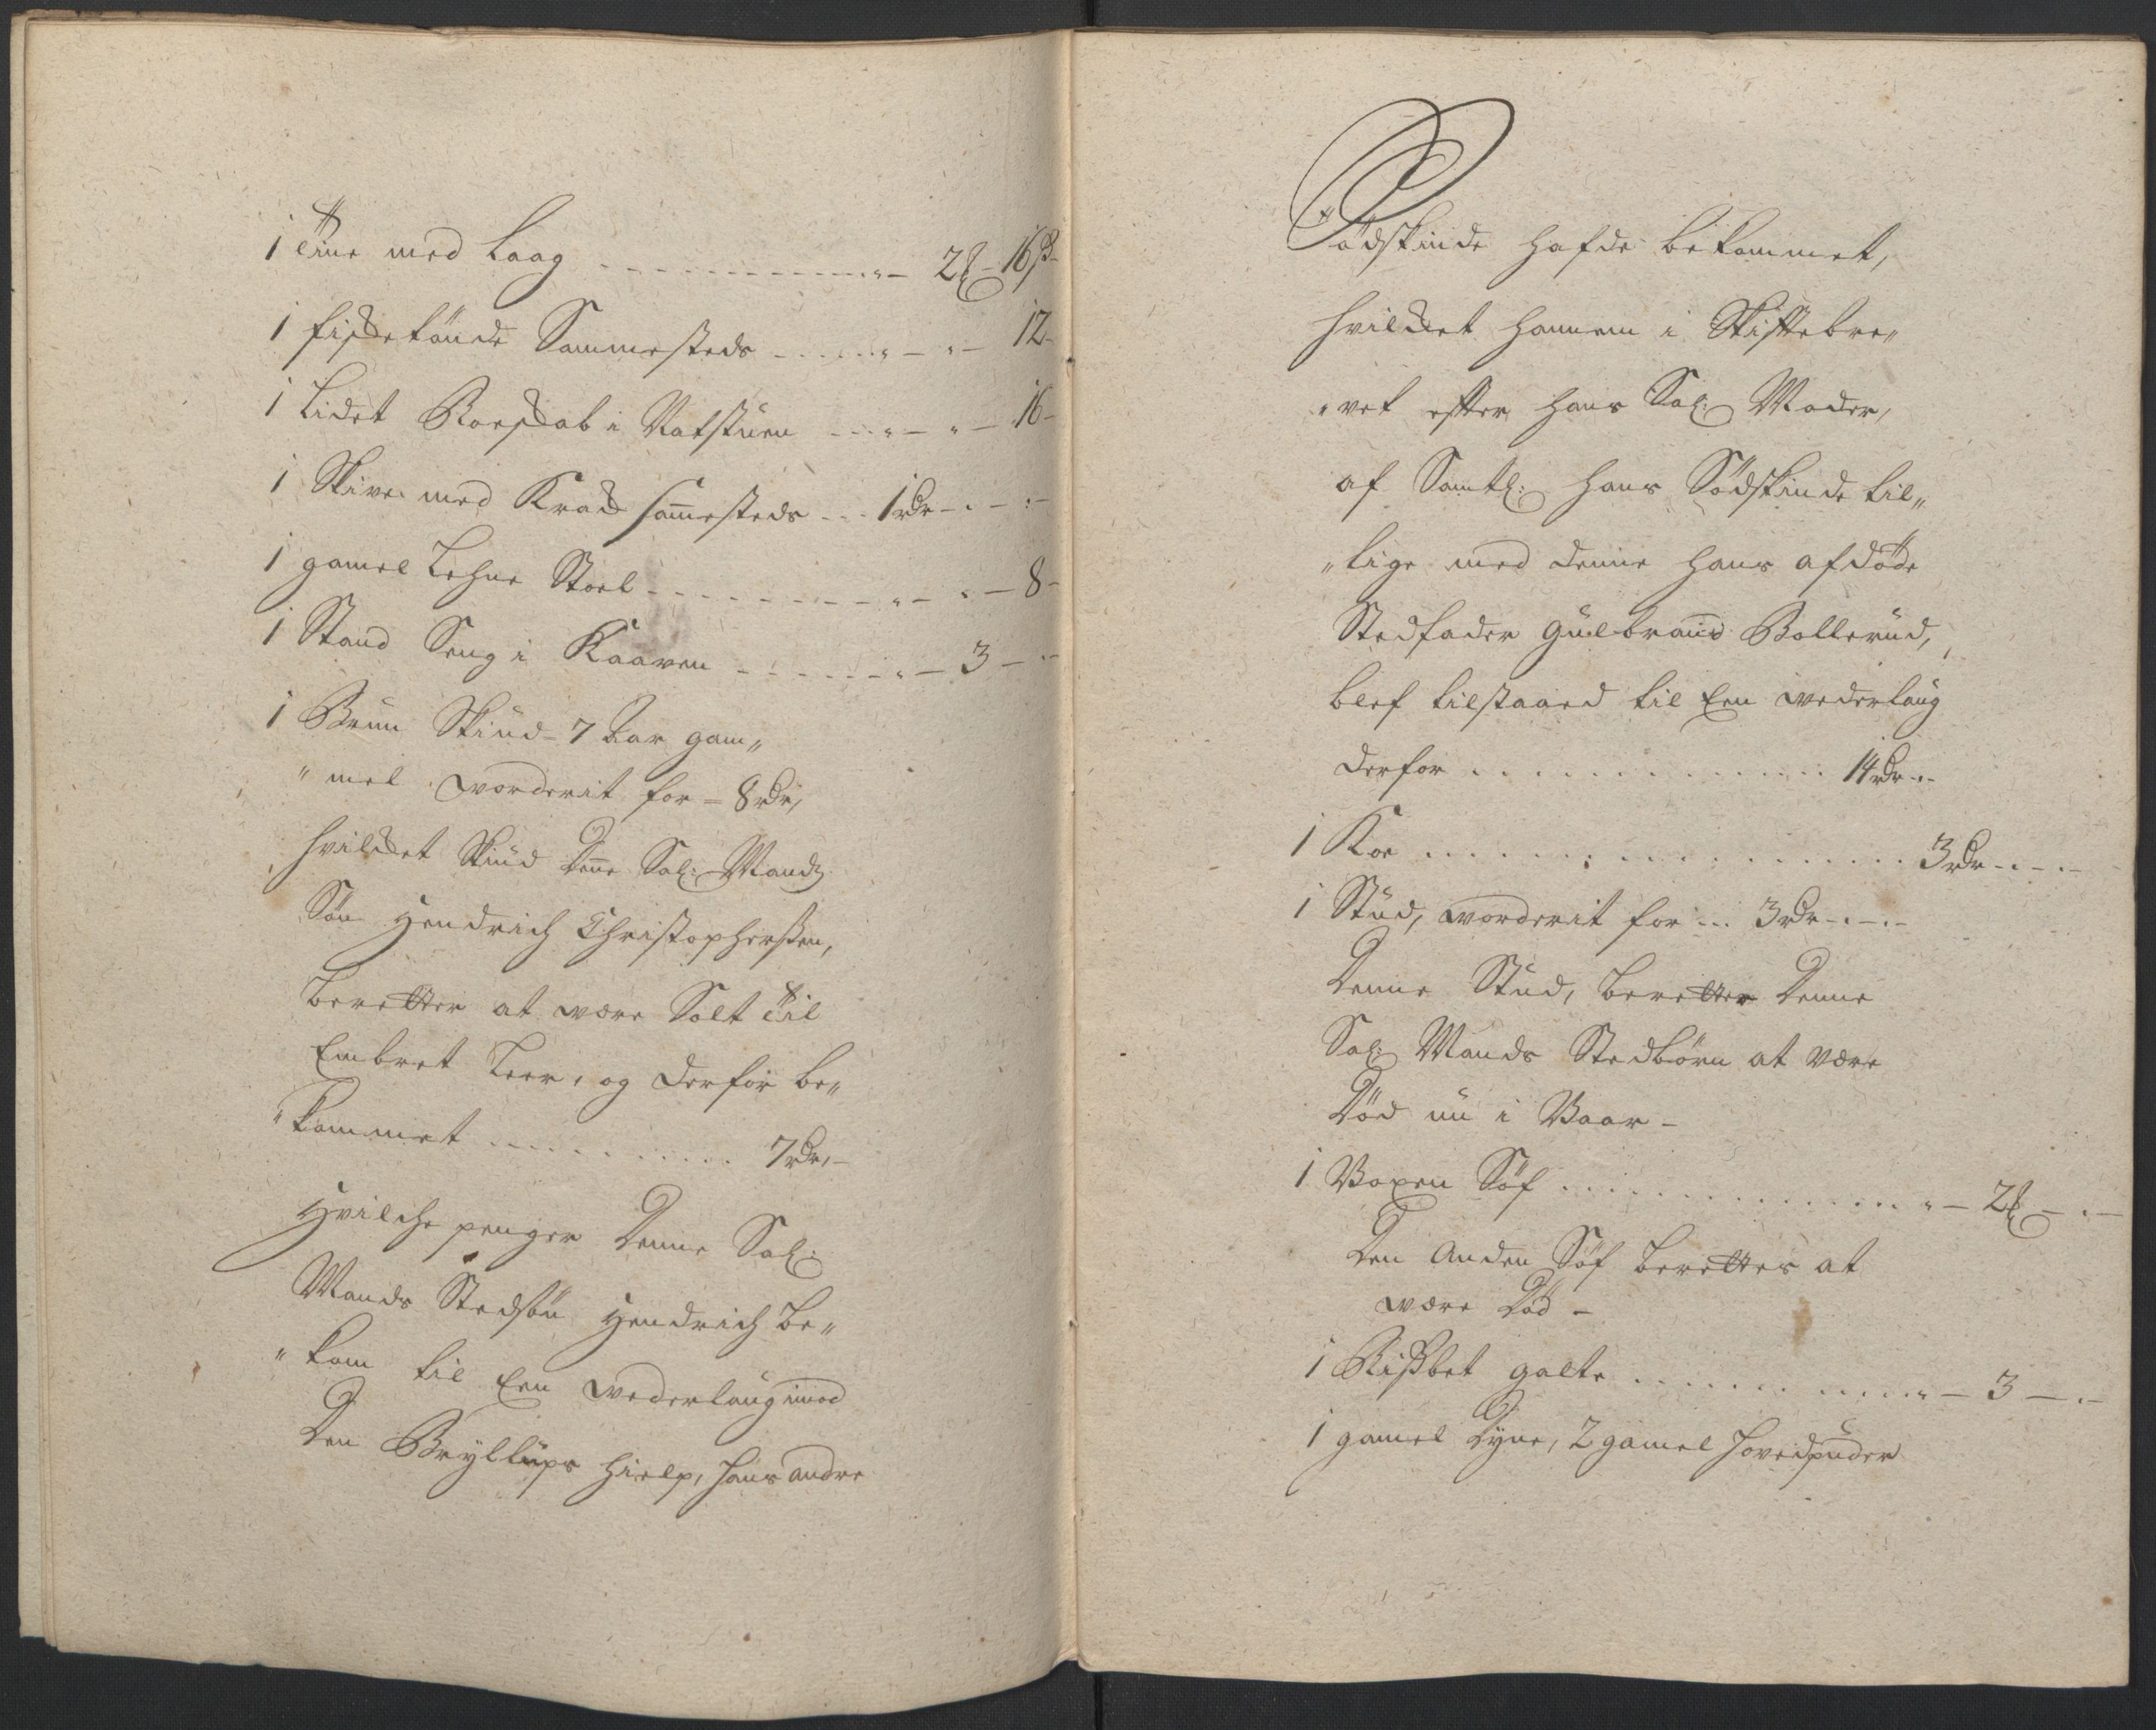 1 Tine med Laag - - - - - - - - - - " - 2 ℔ - 16 ß -
1 fiske tönde Sammesteds - - - - - " - " - 12 -
1 Lidet Roeskab i Ratstuen - - - " - " - 16 -
1 Skive med Krak sam̄esteds - - - 1 rdr - " - " -
1 gamel Lehne Stoel - - - - - - - - " - " - 8 -
1 Stand Seng i Kaaven - - - - - - " - 3 - " -
1 Brun Skiud - 7 Aar gam„
„mel worderit for - 8 rdr,
hvilket Skiud den̄e Sal: Mands
Sön Hendrich Christophersen,
beretter at være Solt til
Embret Leer, og derfor be„
„kommet . . . . . . . . . . . 7 rdr, -
Hvilche penger denne Sal:
Mands Stedsön Hendrich be„
„kom til Een wederlaug imod
den Bryllups hielp, hans andre
Södskinde hafde bekommet,
hvilket hannem i Skiftebre„
„vet efter hans Sal: Moder,
af Samtl: hans Södskinde til„
„lige med denne hans afdöde
Stedfader Gulbrand Bollerud,
blef tilstaaed til Een wederlaug
derfor . . . . . . . . . . . . . 14 rdr - -
1 Koe . . . . . . . . . . . . . . . . . 3 rdr - " - " -
1 Stud, worderit for ... 3 rdr - " - " -
Denne Stud, beretter denne
Sal: Mands Stedbörn at være
död nu i Vaar -
1 Voxen Söf . . . . . . . . . . . . . . " - 2 ℔ - " -
den anden Söf berettes at
være död -
1 Rißbet galte . . . . . . . . . . . . " - 3 - " -
1 gamel dyne, 2 gamel hovedpuder